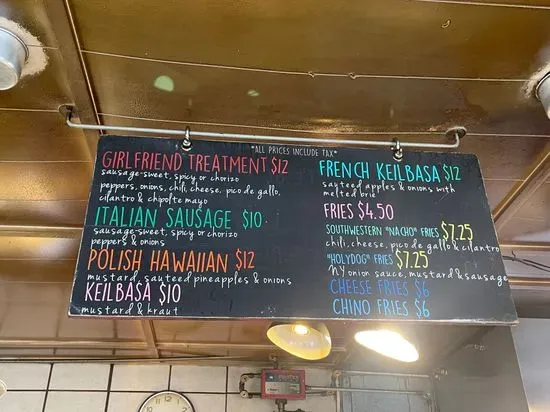 *ALL PRICES INCLUDE TAX*
GIRLFRIEND TREATMENT $12
sausage-sweet, spicy or chorizo
peppers, onions, chili, cheese, pico de gallo,
cilantro & chipolte mayo
ITALIAN SAUSAGE $10
sausage-sweet, spicy or chorizo
peppers & onions
POLISH HAWAIIAN $12
mustard, sauteed pineapples & onions
KEILBASA $10
mustard & kraut
FRENCH KEILBASA $12
sauteed apples & onions with
melted brie
FRIES $4.50
SOUTHWESTERN "NACHO" FRIES $7.25
chili, cheese, pico de gallo & cilantro
"HOLYDOG" FRIES $7.25
NY onion sauce, mustard & sausage
CHEESE FRIES $6
CHINO FRIES $6